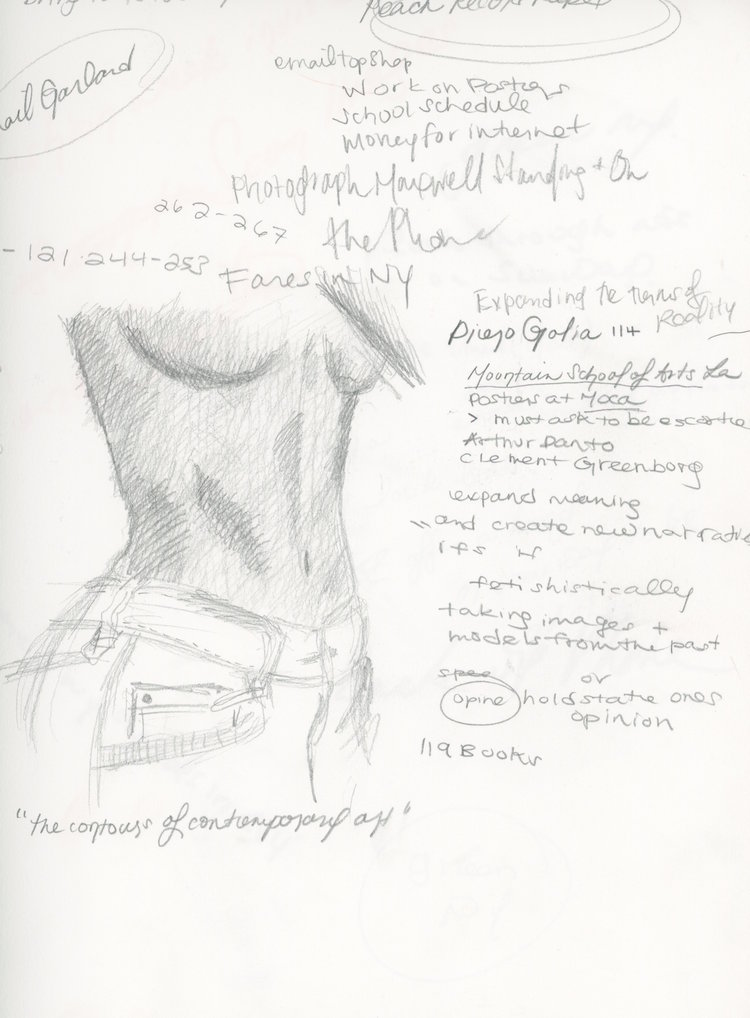 Peach
ail Garland
email topshop
Work on Posters
School Schedule
Money for internet
Photograph Maxwell Standing + On
the Phone
262-267
- 121.244-253
Fares in NY
Expanding the terms of
Reality
Diego Golia 114
Mountain School of Arts La
Posters at Moca
> must ask to be escorte
Arthur Danto
Clement Greenborg
expand meaning
and create new narrative
ifs
fetishistically
taking images +
models from the past
spec or
opine hold state ones
opinion
119 Books
"the contours of contemporary art"